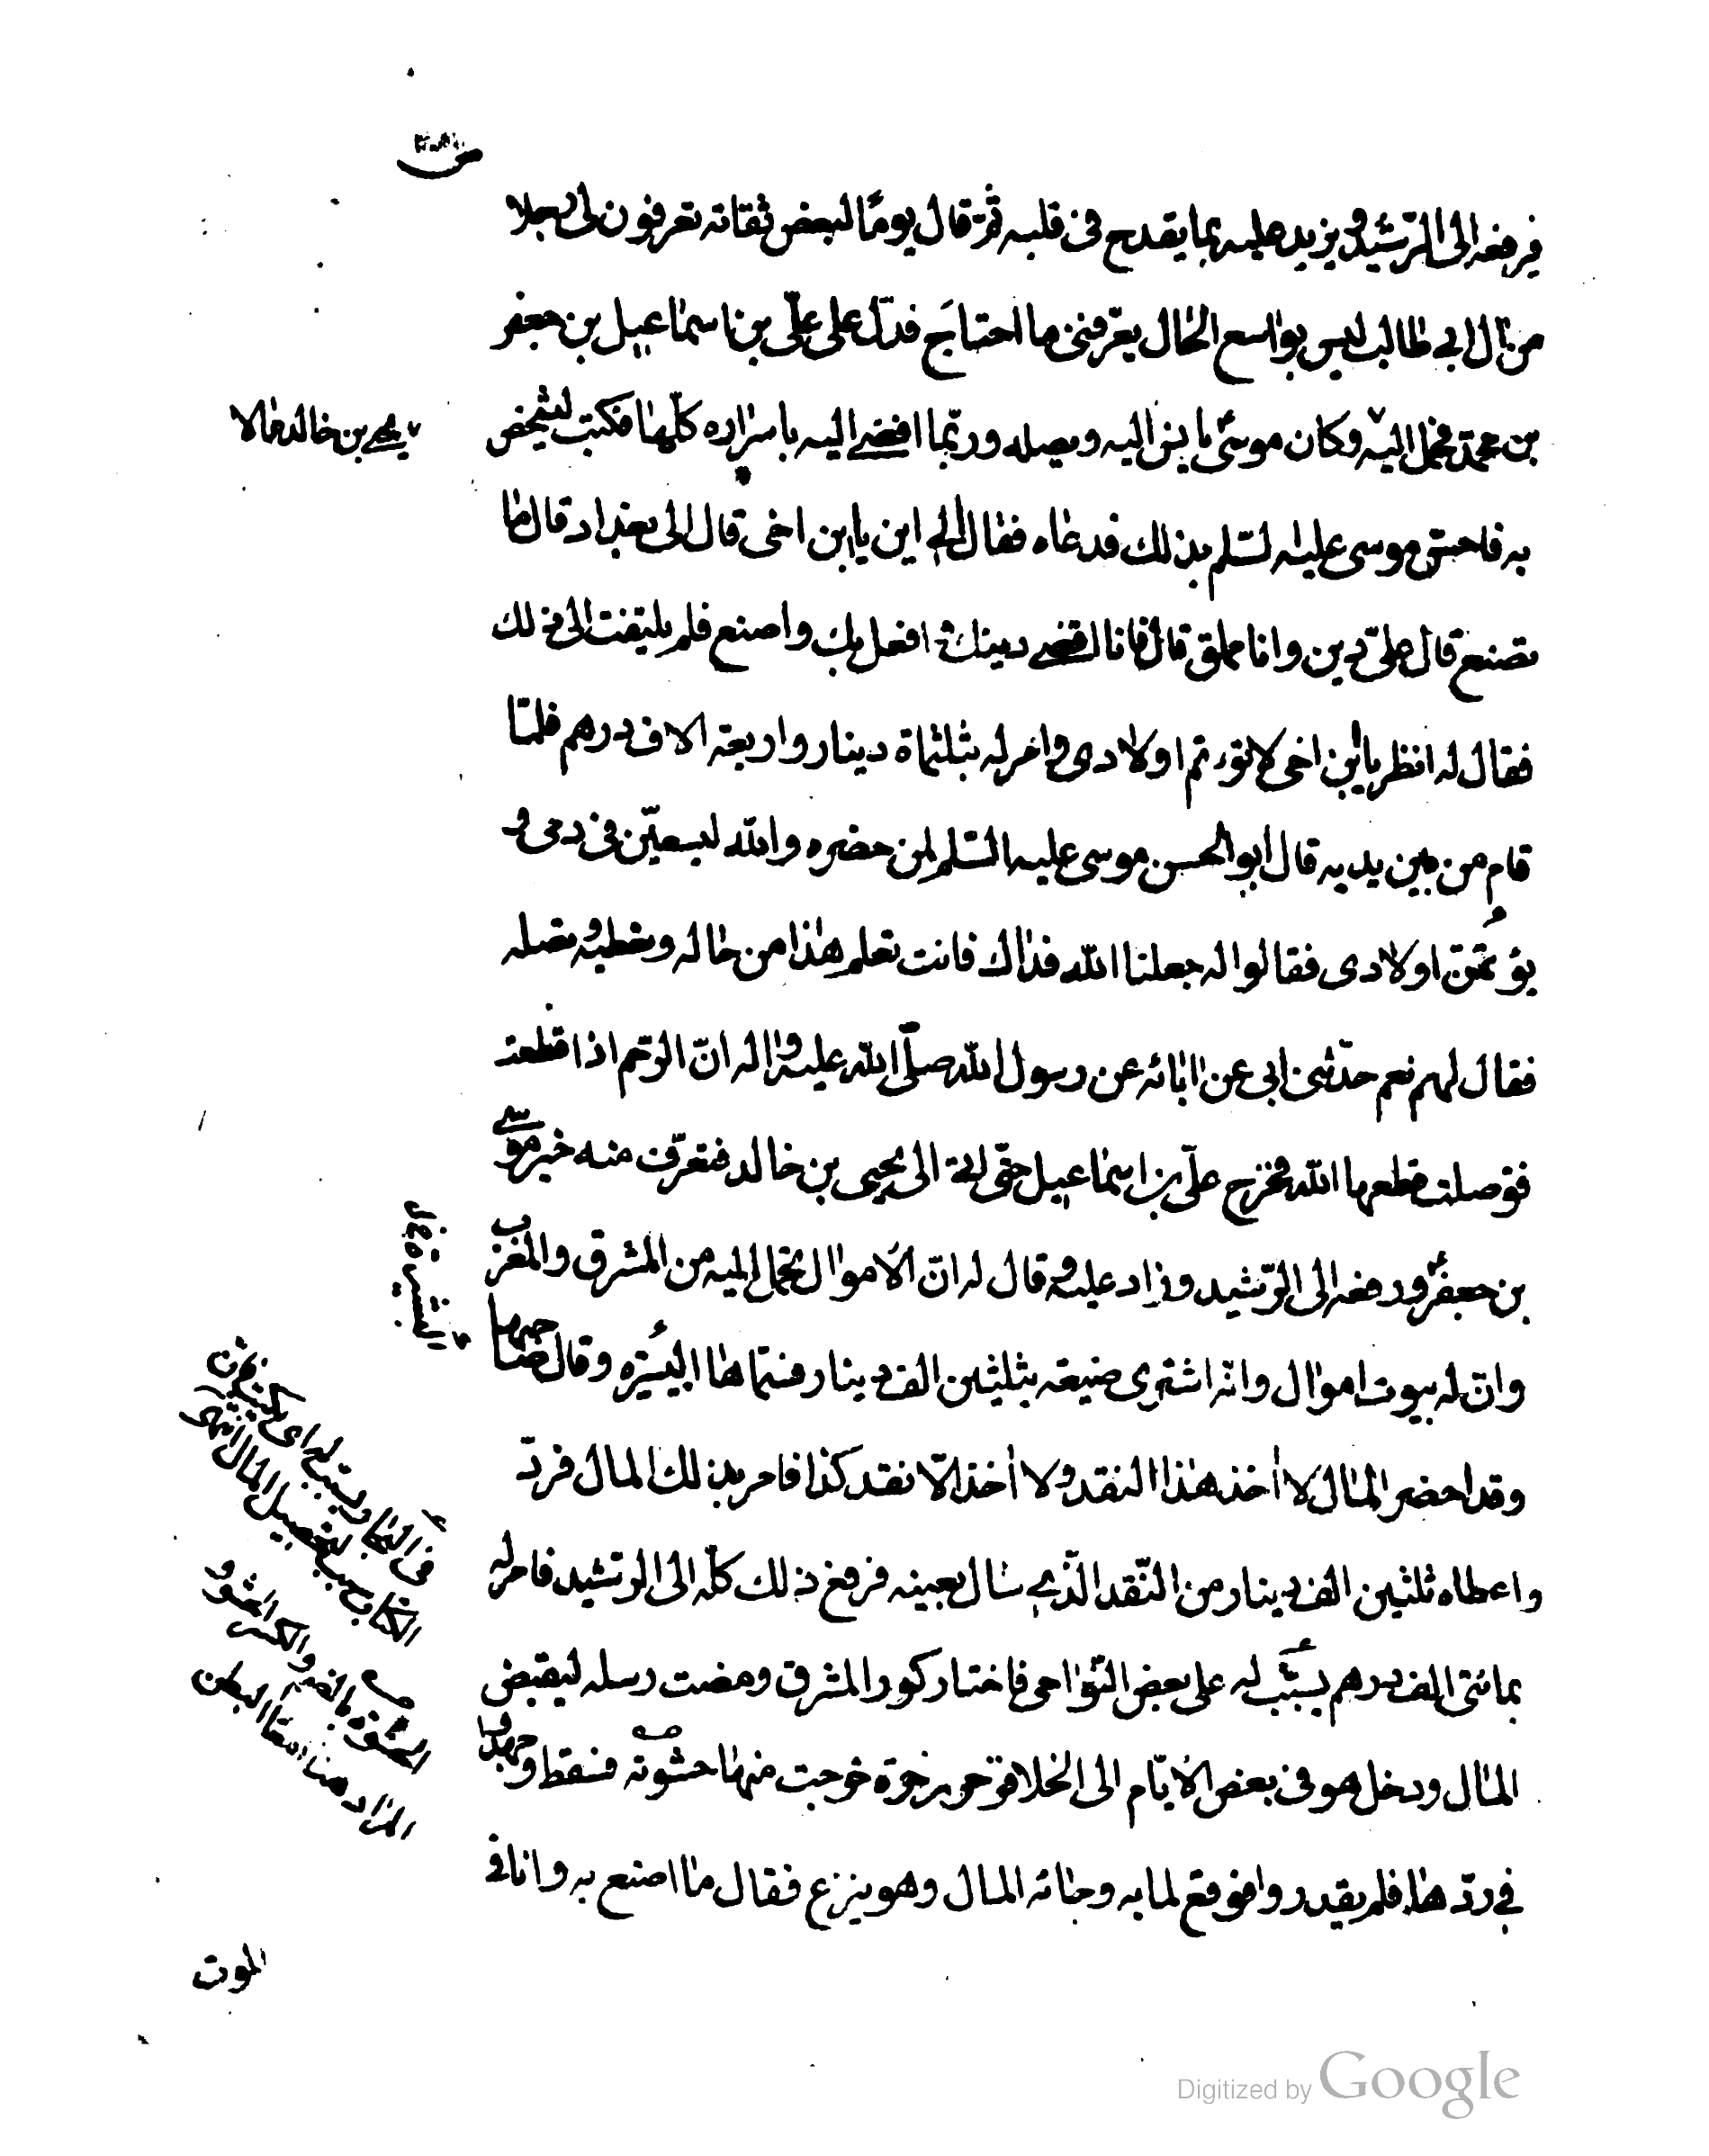 فيرفعه الى الرّشيد و يزيد عليه بما يقدح فى قلبه ثمّ قال يومًا لبعض ثقاته تعرفون لى رجلا
من ال ابي طالب ليس بواسع الحال يعرّفنى ما احتاج فدلّ على علىّ بن اسماعيل بن جعفر
بن محمّد فحمل اليه وكان موسىٰ يانس اليه ويصله وربّما افضى اليه باسراره كلّها فكتب ليشخص
يحيى بن خالد مالا
به فاحسّ موسى عليه السّلم بذلك فدعاه فقال الى اين يابن اخى قال الى بغداد قال ما
تصنع قال علىّ دين وانا مملق قال فانا اقضى دينك و افعل بك واصنع فلم يلتفت الى ذلك
فقال له انظر يابن اخى لا تؤتم اولادى و امر له بثلثماة دينار واربعة الاف درهم فلمّا
قام من بين يديه قال ابو الحسن موسى عليه السّلم لمن حضره والله ليسعينّ فى دمى و
يؤتمنّ اولادى فقالوا له جعلنا الله فداك فانت تعلم هذا من حاله وتعطيه وتصله
فقال لهم نعم حدّثنى ابى عن اٰبائه عن رسول الله صلّى الله عليه واله انّ الرّحم اذا قطعت
فوصلت قطعها الله فخرج علىّ بن اسماعيل حتّى اتى الى يحيى بن خالد فتعرّف منه خبر موسى
بن جعفر ورفعه الى الرّشيد وزاد عليه و قال له انّ الاموال تحمل اليه من المشرق والمغرب
وانّ له بيوت اموال وانّه اشترى ضيعة بثلثين الف دينار فسمّاها اليسيرة وقال صاحبها
وقد احضر المال لا اٰخذ هذا النقد و لا اٰخذ الّا نقد كذا فامر بذلك المال فردّ
واعطاه ثلثين الف دينار من النّقد الّذى سال بعينه فرفع ذلك كلّه الى الرّشيد فامر له
بمائتى الف درهم يسبّب له على بعض النّواحى فاختار كور المشرق ومضت رسله ليقبض
المال ودخل هو فى بعض الايّام الى الخلا فزحر زحرة خرجت منها حشوته فسقط و جهدوا
في ردّها فلم يقدروا فوقع لما به وجائه المال وهو ينزع فقال ما اصنع به وانا فى
الموت